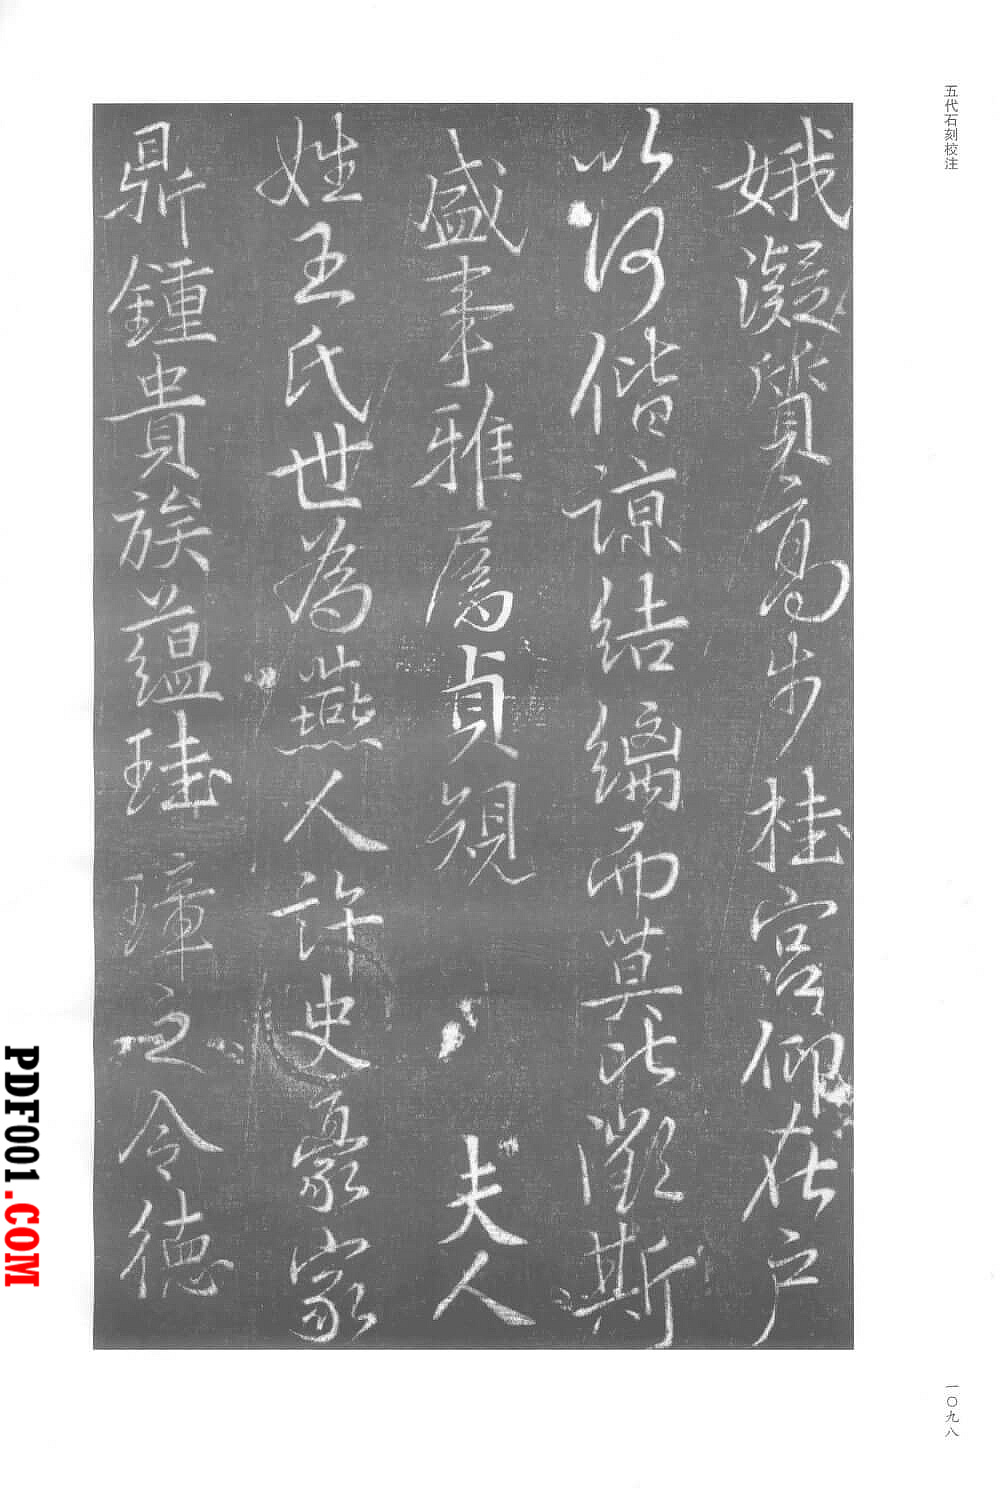 五代石刻校注
娥凝質高步桂宮仰在户
以何偕諒結編而莫比徵斯
盛事雅属貞規 夫人
姓王氏世為燕人許史豪家
鼎鍾貴族藴珪璋之令德
一〇九八
PDF001.COM